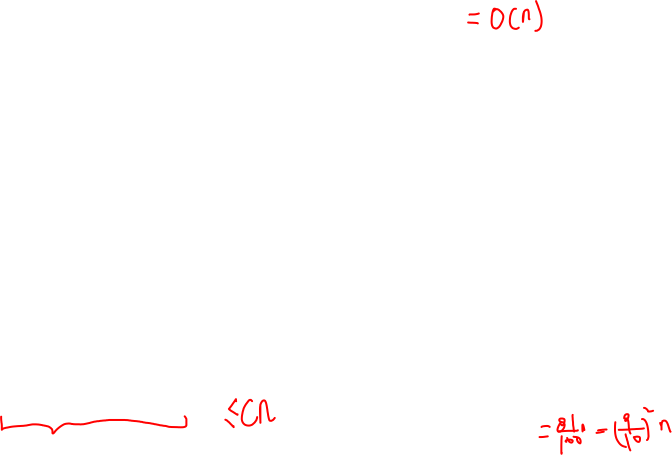 = O(n)
≤ Cn
= 81/100 n = (9/10)² n